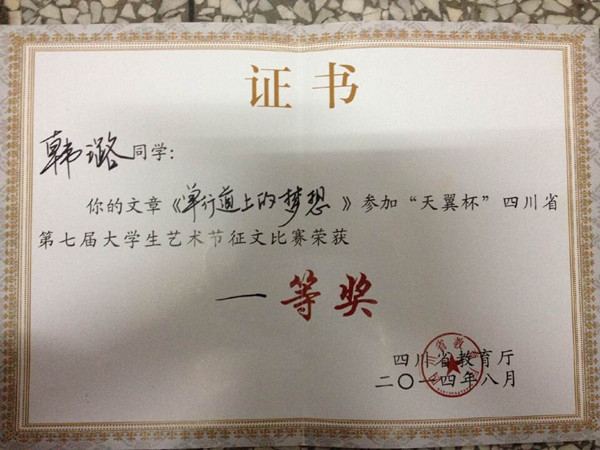 证书
韩璐同学：
你的文章《单行道上的梦想》参加“天翼杯”四川省
第七届大学生艺术节征文比赛荣获
一等奖
四川省教育厅
二〇一四年八月